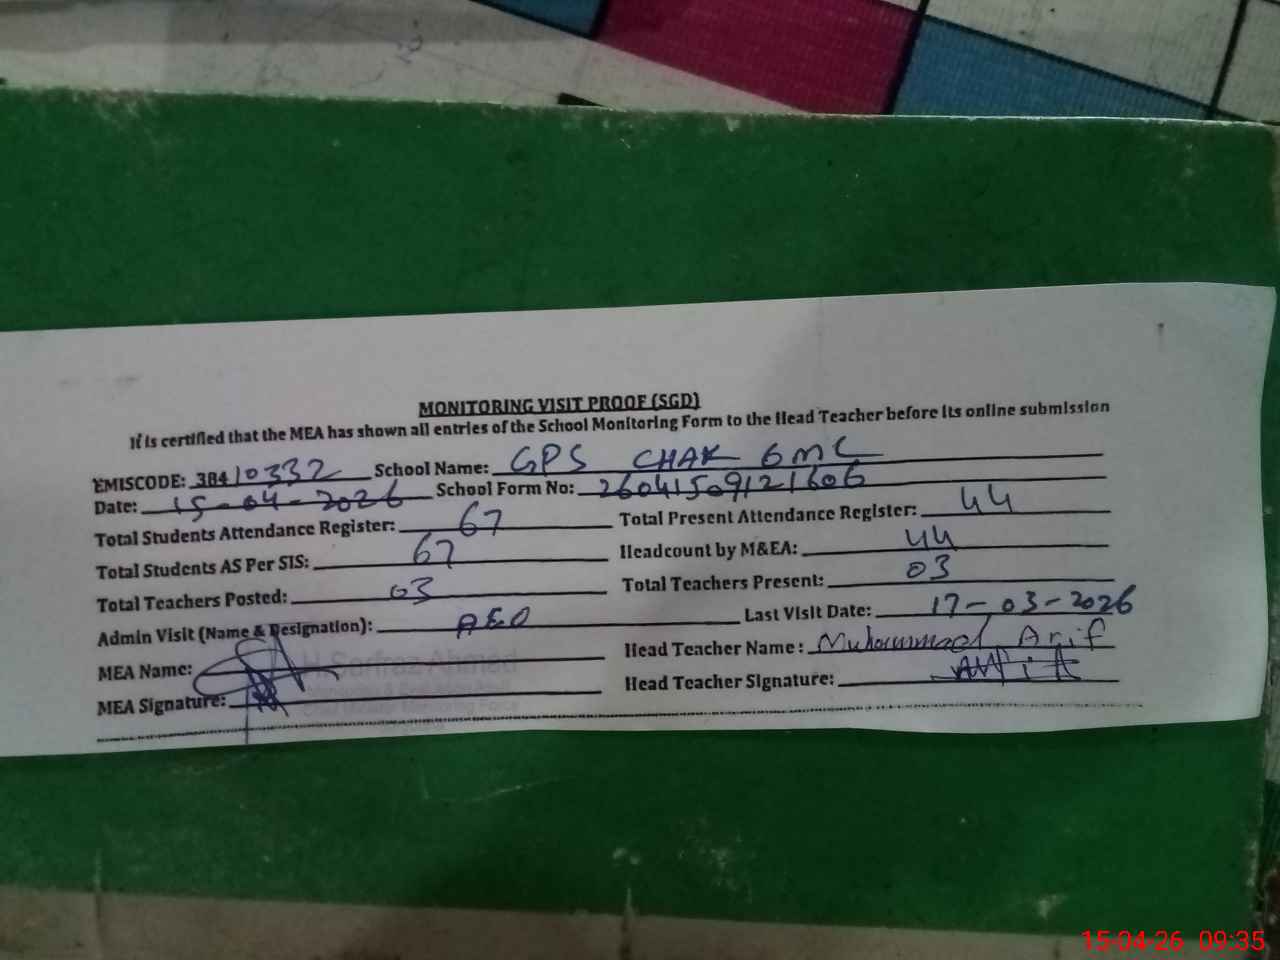 MONITORING VISIT PROOF (SGD)
It is certified that the MEA has shown all entries of the School Monitoring Form to the Head Teacher before its online submission
EMISCODE: 38410332 School Name: GPS CHAK 6MC
Date: 15-04-2026 School Form No: 26041509121606
Total Students Attendance Register: 67 Total Present Attendance Register: 44
Total Students AS Per SIS: 67 Headcount by M&EA: 44
Total Teachers Posted: 03 Total Teachers Present: 03
Admin Visit (Name & Designation): AEO Last Visit Date: 17-03-2026
MEA Name: Sarfraz Ahmed Head Teacher Name: Muhammad Arif
MEA Signature: Head Teacher Signature:
15-04-26 09:35